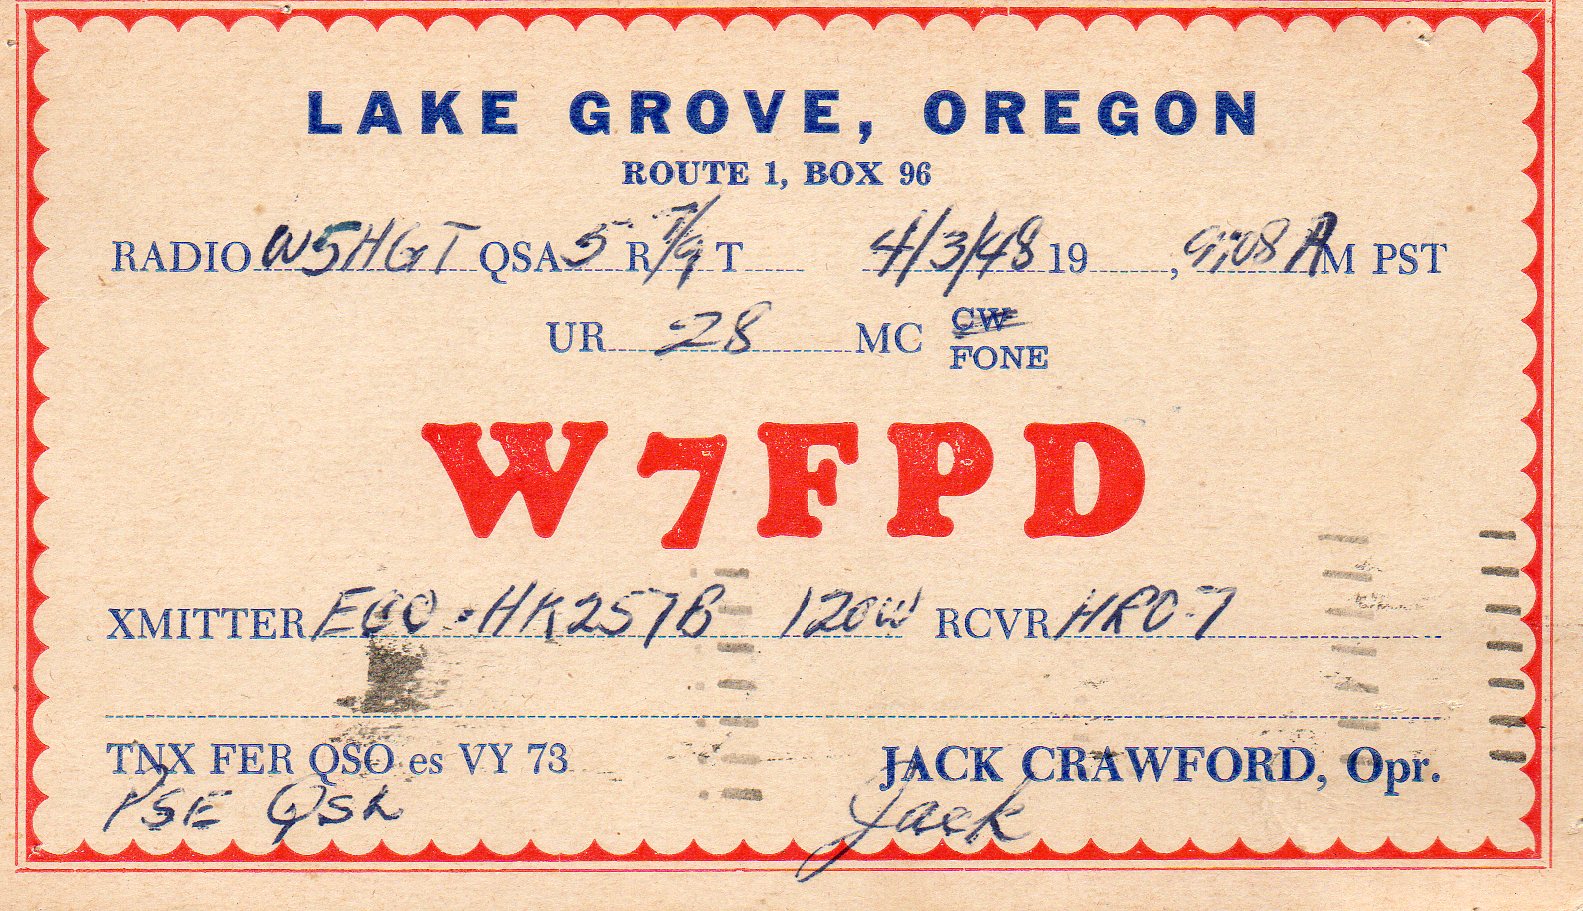 LAKE GROVE, OREGON
ROUTE 1, BOX 96
RADIO W5HGT QSA 5 R 7/9 T 4/3/48 19 , 9:08 A M PST
UR 28 MC CW
FONE
W7FPD
XMITTER ECO-HK257B 120W RCVR HRO-7
TNX FER QSO es VY 73 JACK CRAWFORD, Opr.
PSE QSL Jack